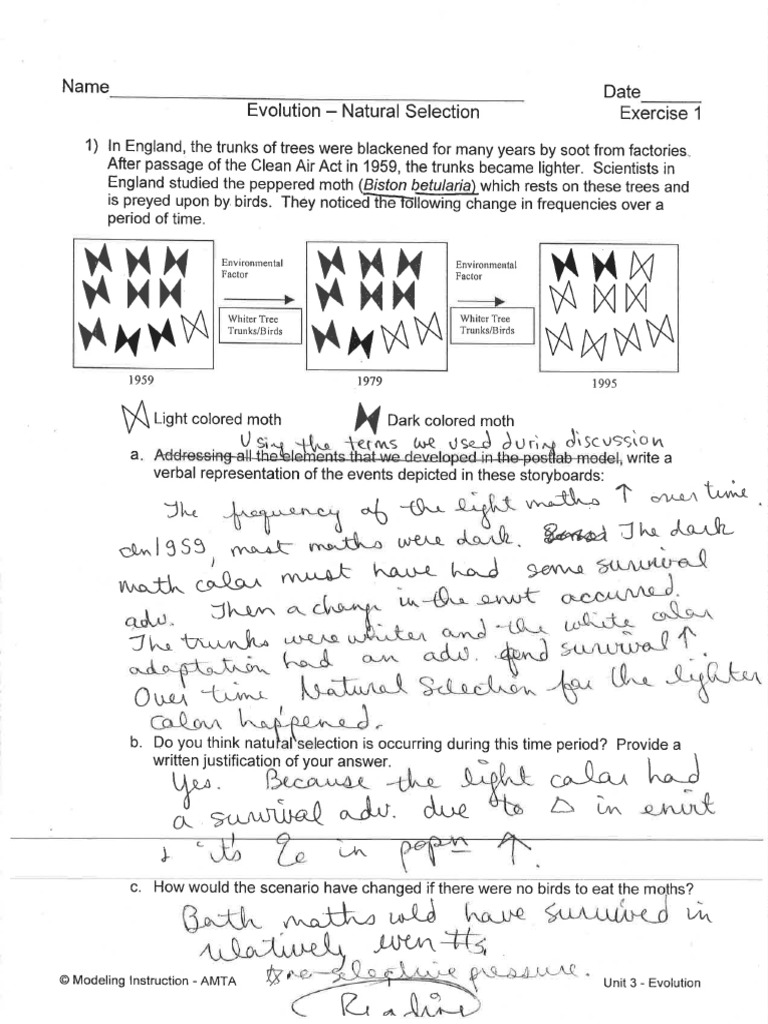 Name
Date
Evolution – Natural Selection
Exercise 1
1) In England, the trunks of trees were blackened for many years by soot from factories.
After passage of the Clean Air Act in 1959, the trunks became lighter. Scientists in
England studied the peppered moth (Biston betularia) which rests on these trees and
is preyed upon by birds. They noticed the following change in frequencies over a
period of time.
Environmental
Factor
Whiter Tree
Trunks/Birds
Environmental
Factor
Whiter Tree
Trunks/Birds
1959
1979
1995
Light colored moth
Dark colored moth
Using the terms we used during discussion
a. Addressing all the elements that we developed in the postlab model, write a
verbal representation of the events depicted in these storyboards:
The frequency of the light moths ↑ over time.
In 1959, most moths were dark. The dark
moth color must have had some survival
adv. Then a change in the envt occurred.
The trunks were whiter and the white color
adaptation had an adv. and survival ↑.
Over time Natural Selection for the lighter
color happened.
b. Do you think natural selection is occurring during this time period? Provide a
written justification of your answer.
Yes. Because the light color had
a survival adv. due to Δ in envirt
& it's in popn ↑.
c. How would the scenario have changed if there were no birds to eat the moths?
Both moths wld have survived in
relatively even #s
no selective pressure.
© Modeling Instruction - AMTA
Unit 3 - Evolution